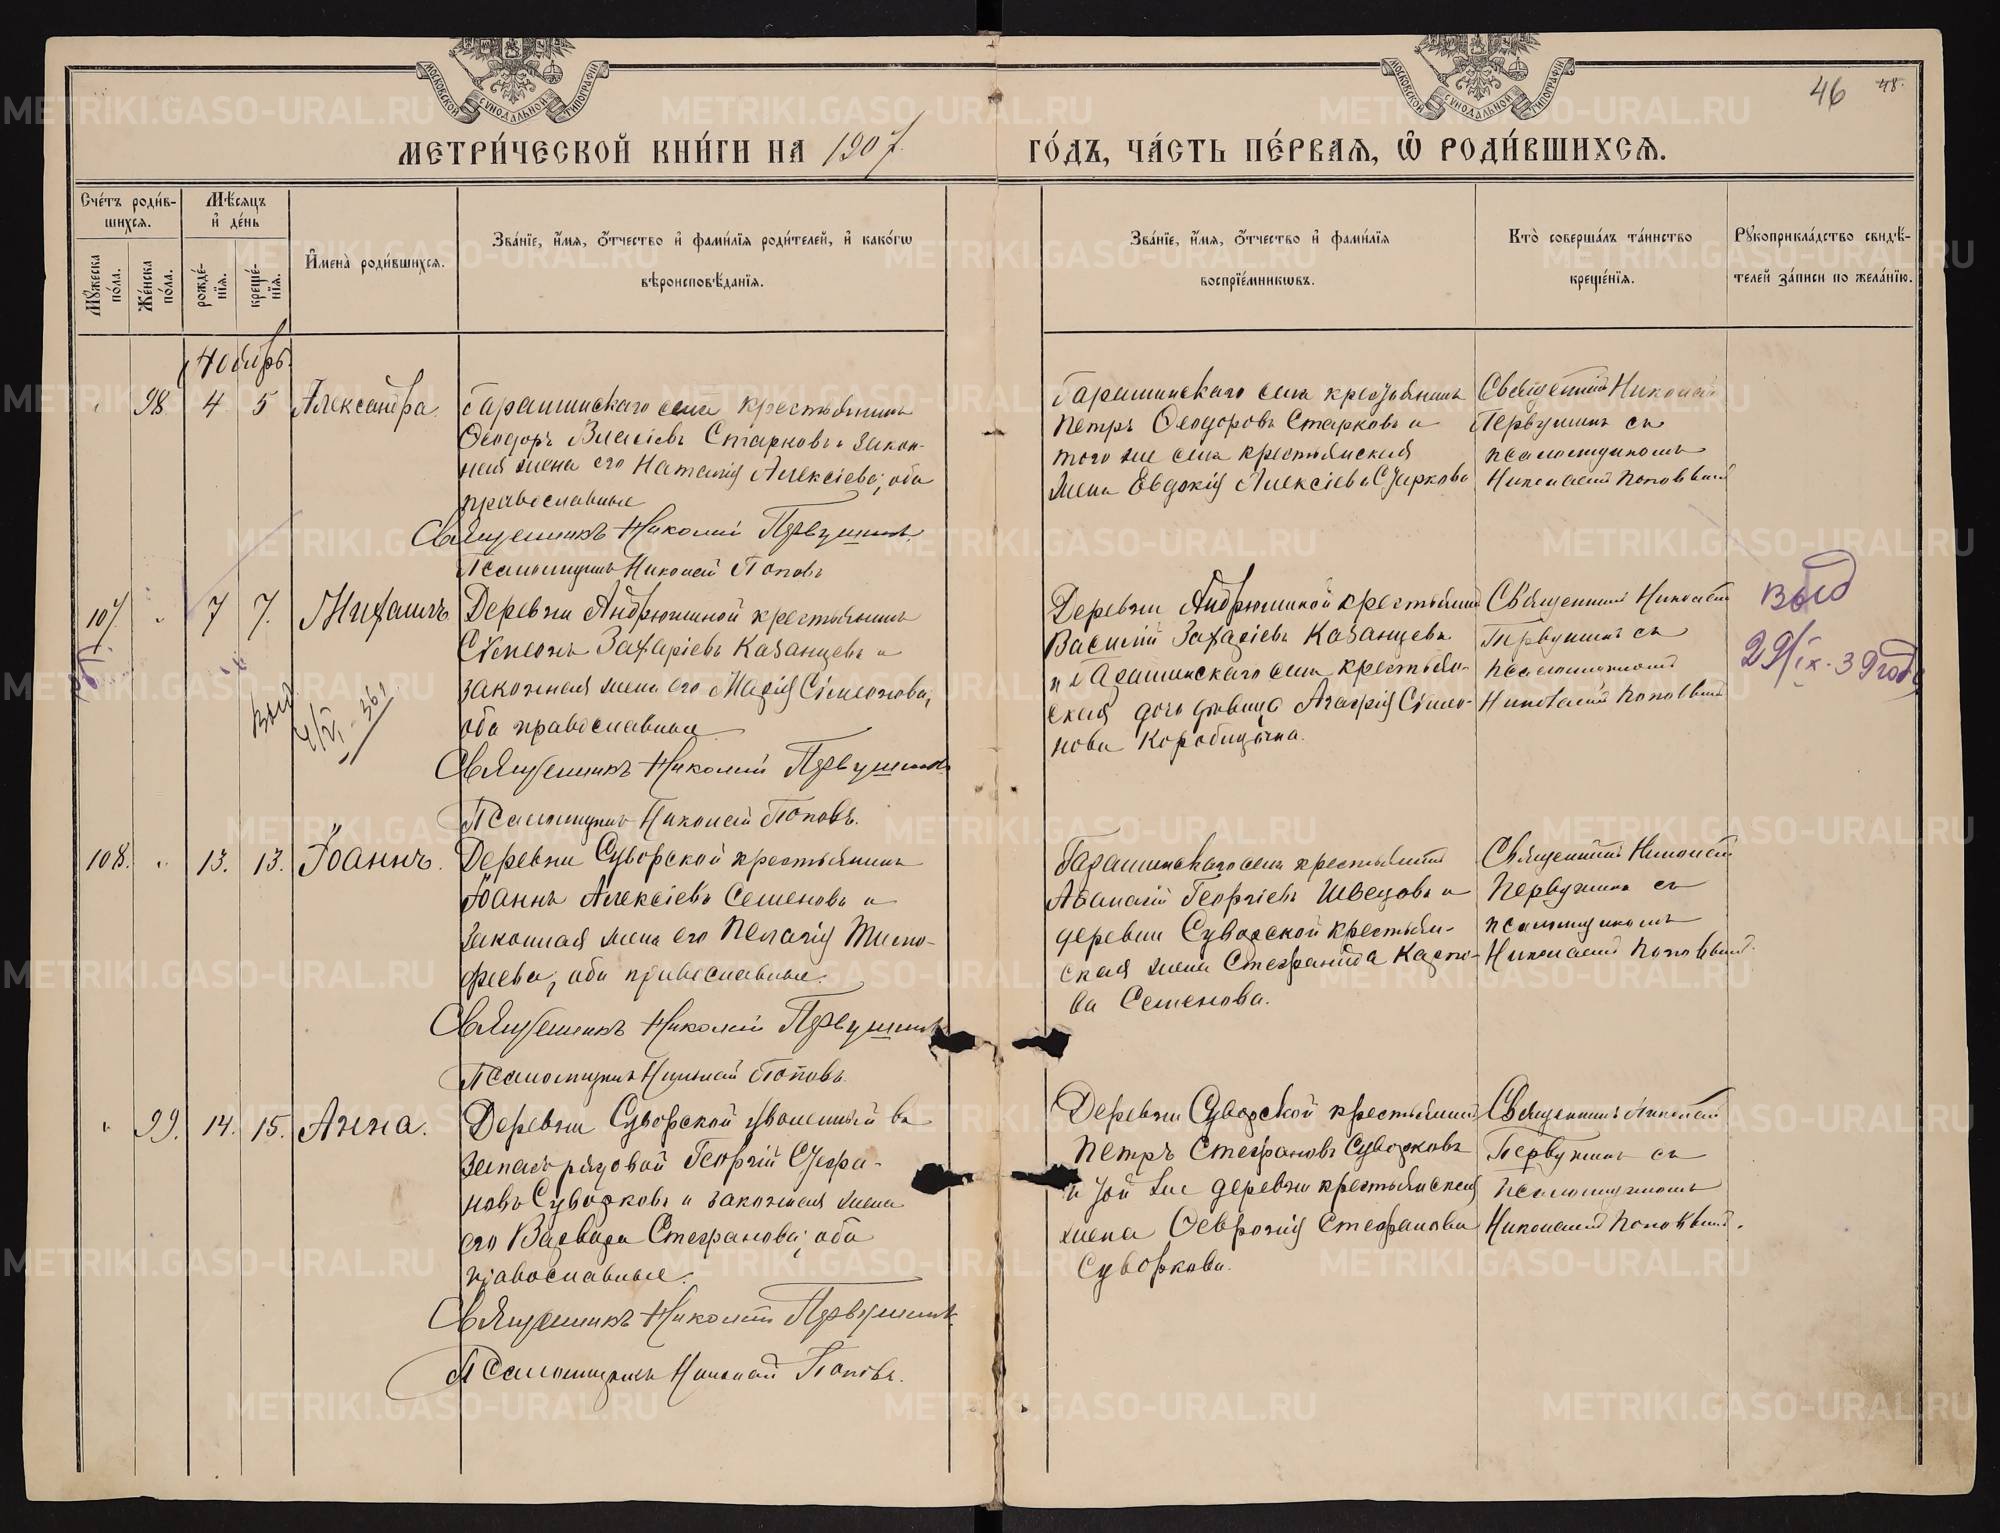 МОСКОВСКОЙ СИНОДАЛЬНОЙ ТИПОГРАФІИ
МОСКОВСКОЙ СИНОДАЛЬНОЙ ТИПОГРАФІИ
46 48.
МЕТРИ́ЧЕСКОЙ КНИ́ГИ НА 1907
ГО́ДЪ, ЧА́СТЬ ПЕ́РВАѦ, Ѡ҆ РОДИ́ВШИХСѦ.
Сче́тъ роди́в-
шихсѧ.
Мꙋ́жеска по́ла.
Же́нска по́ла.
Мѣ́сѧцъ
и҆ де́нь
рожде́-
нїѧ.
креще́-
нїѧ.
И҆мена̀ роди́вшихсѧ.
Зва́нїе, и҆́мѧ, ѻ҆́тчество и҆ фами́лїѧ роди́телей, и҆ како́гѡ
вѣроисповѣ́данїѧ.
Зва́нїе, и҆́мѧ, ѻ҆́тчество и҆ фами́лїѧ
воспрїе́мникѡвъ.
Кто̀ соверша́лъ та́инство
креще́нїѧ.
Рꙋкоприкла́дство свидѣ́-
телей за́писи по жела́нїю.
Ноябрь.
98 4 5 Александра.
Гарашинскаго села крестьянинъ
Ѳеодоръ Власіевъ Старковъ и закон-
ная жена его Наталія Алексіева; оба
православные
Священникъ Николай Первушинъ.
Псаломщикъ Николай Поповъ
Гарашинскаго села крестьянинъ
Петръ Ѳеодоровъ Старковъ и
того же села крестьянская
жена Евдокія Алексіева Старкова
Священникъ Николай
Первушинъ съ
псаломщикомъ
Николаемъ Поповымъ
107. " 7 7. Михаилъ
Деревни Андрюшиной крестьянинъ
Сімеонъ Захаріевъ Казанцевъ и
законная жена его Марія Сімеонова,
оба православные
Священникъ Николай Первушинъ
Псаломщикъ Николай Поповъ.
выд
4/VI - 36
Деревни Андрюшиной крестьянинъ
Василій Захаріевъ Казанцевъ
и Гарашинскаго села крестьян-
ская дочь дѣвица Агафія Сімео-
нова Коробицына.
Священникъ Николай
Первушинъ съ
псаломщикомъ
Николаемъ Поповымъ
выд
29/IX - 39 года
108. " 13. 13. Іоаннъ.
Деревни Суворской крестьянинъ
Іоаннъ Алексіевъ Семеновъ и
законная жена его Пелагія Тимо-
феева, оба православные.
Священникъ Николай Первушинъ
Псаломщикъ Николай Поповъ.
Гарашинскаго села крестьянинъ
Аѳанасій Георгіевъ Швецовъ и
деревни Суворской крестьян-
ская жена Стефанида Карпо-
ва Семенова.
Священникъ Николай
Первушинъ съ
псаломщикомъ
Николаемъ Поповымъ.
" 99. 14. 15. Анна.
Деревни Суворской уволенный въ
запасъ рядовой Георгій Стефа-
новъ Суворковъ и законная жена
его Варвара Стефанова; оба
православные.
Священникъ Николай Первушинъ.
Псаломщикъ Николай Поповъ.
Деревни Суворской крестьянинъ
Петръ Стефановъ Суворковъ
и той же деревни крестьянская
жена Ѳеврония Стефанова
Суворкова.
Священникъ Николай
Первушинъ съ
псаломщикомъ
Николаемъ Поповымъ.
METRIKI.GASO-URAL.RU